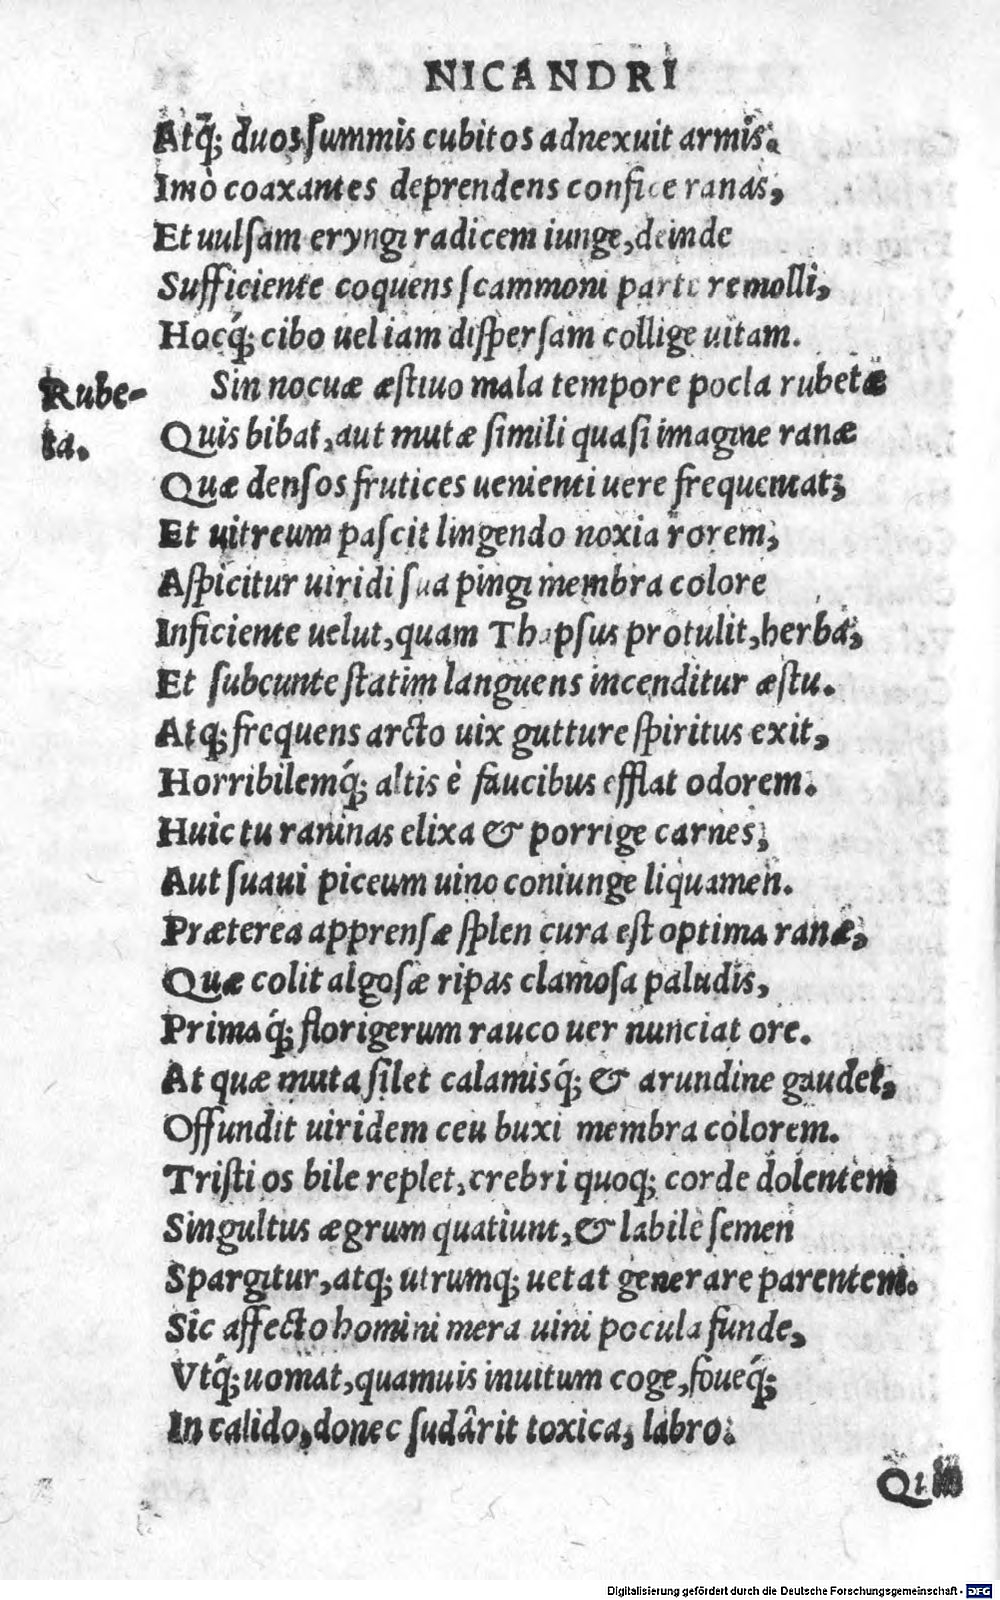 NICANDRI
Atq́; duos ſummis cubitos adnexuit armis.
Imò coaxantes deprendens confice ranas,
Et uulſam eryngi radicem iunge, deinde
Sufficiente coquens ſcammoni parte remolli,
Hocq́; cibo uel iam diſperſam collige uitam.
Rube-
ta.
Sin nocuæ æſtiuo mala tempore pocla rubetæ
Quis bibat, aut mutæ ſimili quaſi imagine ranæ
Quæ denſos frutices uenienti uere frequentat;
Et uitreum paſcit lingendo noxia rorem,
Aſpicitur uiridi ſua pingi membra colore
Inficiente uelut, quam Thapſus protulit, herba;
Et ſubeunte ſtatim languens incenditur æſtu.
Atq; frequens arcto uix gutture ſpiritus exit,
Horribilemq́; altis è faucibus efflat odorem.
Huic tu raninas elixa & porrige carnes;
Aut ſuaui piceum uino coniunge liquamen.
Præterea apprenſæ ſplen cura eſt optima ranæ,
Quæ colit algoſæ ripas clamoſa paludis,
Primaq́; florigerum rauco uer nunciat ore.
At quæ muta ſilet calamisq́; & arundine gaudet,
Offundit uiridem ceu buxi membra colorem.
Triſti os bile replet, crebri quoq; corde dolentem
Singultus ægrum quatiunt, & labile ſemen
Spargitur, atq; utrumq; uetat generare parentem.
Sic affecto homini mera uini pocula funde,
Vtq́; uomat, quamuis inuitum coge, foueq́;
In calido, donec ſudârit toxica, labro.